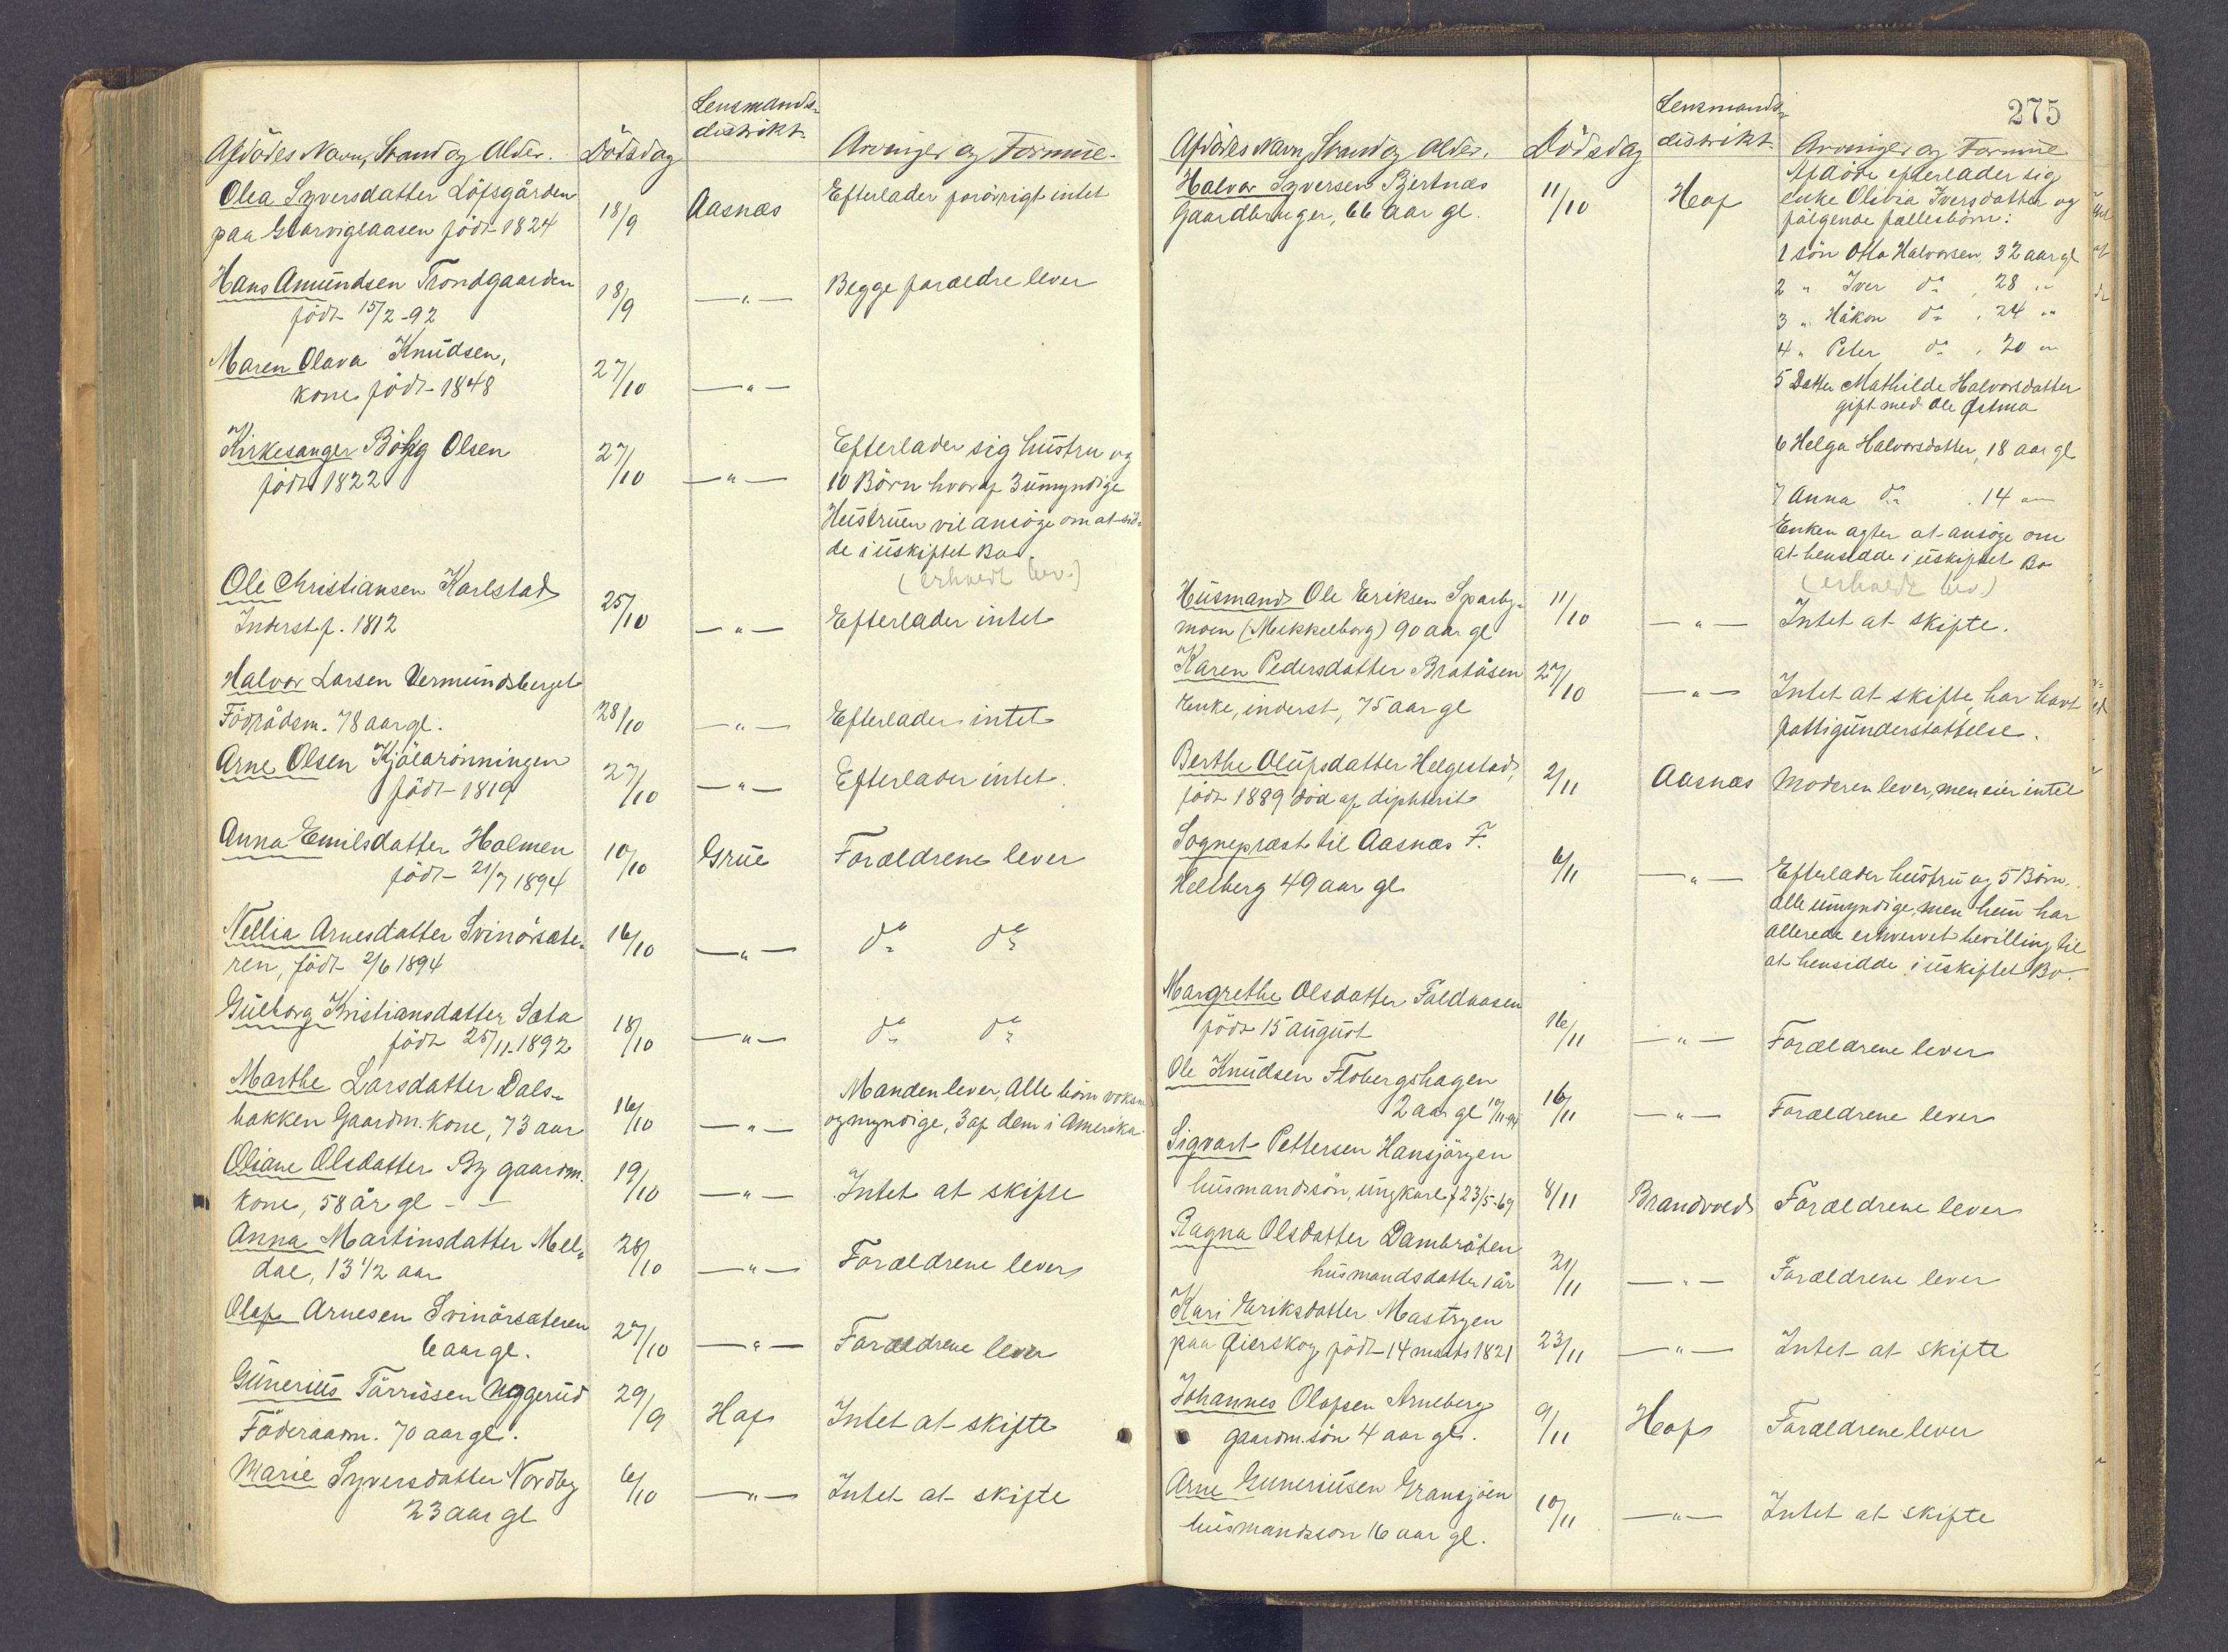 Lensmands-
distrikt.
Afdödes Navn, Stand og Alder. Dödsdag Arvinger og Formue.
Olea Syversdatter Löfsgården 18/9 Aasnæs Efterlader forövrigt intet
paa födt 1824
Hans Amundsen Trondgaarden 18/9 —"— Begge forældre lever
födt 15/2-92
Maren Olava Knudsen, 27/10 —"—
kone, födt 1848
Kirkesanger Olsen 27/10 —"— Efterlader sig hustru og
födt 1822 10 Börn hvoraf 3 umyndige
Hustruen vil ansöge om at sid-
de i uskiftet Bo.
(erholdt bev.)
Ole Christiansen Karlstad 25/10 —"— Efterlader intet
Inderst f. 1812
Halvor Larsen Vermundsberget
Födrådsm. 78 aar gl. 28/10 —"— Efterlader intet
Arne Olsen Kjölarönningen 27/10 —"— Efterlader intet.
födt 1819
Anna Emilsdatter Holmen 10/10 Grue Forældrene lever
födt 21/7 1894
Nellia Arnesdatter Svinörsæte- 16/10 —"— do do
ren, födt 2/6 1894
Gulborg Kristiansdatter Sæta 18/10 —"— do do
födt 25/11-1892
Marthe Larsdatter Dals- 16/10 —"— Manden lever, Alle börn voksne
bakken Gaardm. kone, 73 aar og myndige, 3 af dem i Amerika.
Oliane Olsdatter By gaardm. 19/10 —"— Intet at skifte
kone, 58 år gl - -
Anna Martinsdatter Mel- 28/10 —"— Forældrene lever
dal, 13 1/2 aar
Olaf Arnesen Svinörsæteren 27/10 —"— Forældrene lever
6 aar gl.
Gunerius Törrissen Uggerud 29/9 Hof Intet at skifte
Föderaadm. 70 aar gl.
Marie Syversdatter Nordby 6/10 —"— Intet at skifte
23 aar gl
275
Lensmands-
distrikt.
Afdödes Navn, Stand og Alder. Dödsdag Arvinger og Formue
Halvor Syversen Bjertnæs 11/10 Hof Afdöde efterlader sig
Gaardbruger, 66 aar gl. enke Olivia Iversdatter og
fölgende fællesbörn:
1 sön Otto Halvorsen, 32 aar gl
2 " Iver do , 28 "
3 " Håkon do , 24 "
4 " Peter do , 20 "
5 Datter Mathilde Halvorsdatter
gift med Ole Østmo
6 Helga Halvorsdatter, 18 aar gl
7 Anna do . 14 "
Enken agter at ansöge om
at hensidde i uskiftet Bo
(erholdt bev.)
Husmand Ole Eriksen Sparby- 11/10 —"— Intet at skifte.
moen (Mikkelborg) 90 aar gl
Karen Pedersdatter Bratåsen 27/10 —"— Intet at skifte, har havt
Enke, inderst, 75 aar gl fattigunderstøttelse.
Berthe Olufsdatter Helgestad, 2/11 Aasnæs Moderen lever, men eier intet
födt 1889 död af diphterit
Sognepræst til Aasnæs F. 6/11 —"— Efterlader hustru og 5 Börn,
Heltberg 49 aar gl. alle umyndige, men hun har
allerede erhvervet bevilling til
at hensidde i uskiftet Bo.
Margrethe Olsdatter Faldaasen 16/11 —"— Forældrene lever
födt 15 august
Ole Knudsen Flobergshagen 16/11 —"— Forældrene lever
2 aar gl 10/11-94
Sigvart Pettersen Hansjörgen
husmandssön, ungkarl f 23/5-69 8/11 Brandvold Forældrene lever
Ragna Olsdatter Dambråten 21/11 —"— Forældrene lever
husmandsdatter 1 år
Kari Eriksdatter Mastryen
paa Øierskog födt 14 marts 1821 23/11 —"— Intet at skifte
Johannes Olafsen Arneberg 9/11 Hof Forældrene lever
gaardm. sön 4 aar gl.
Arne Guneriusen Gransjöen 10/11 —"— Intet at skifte
husmandssön 16 aar gl.